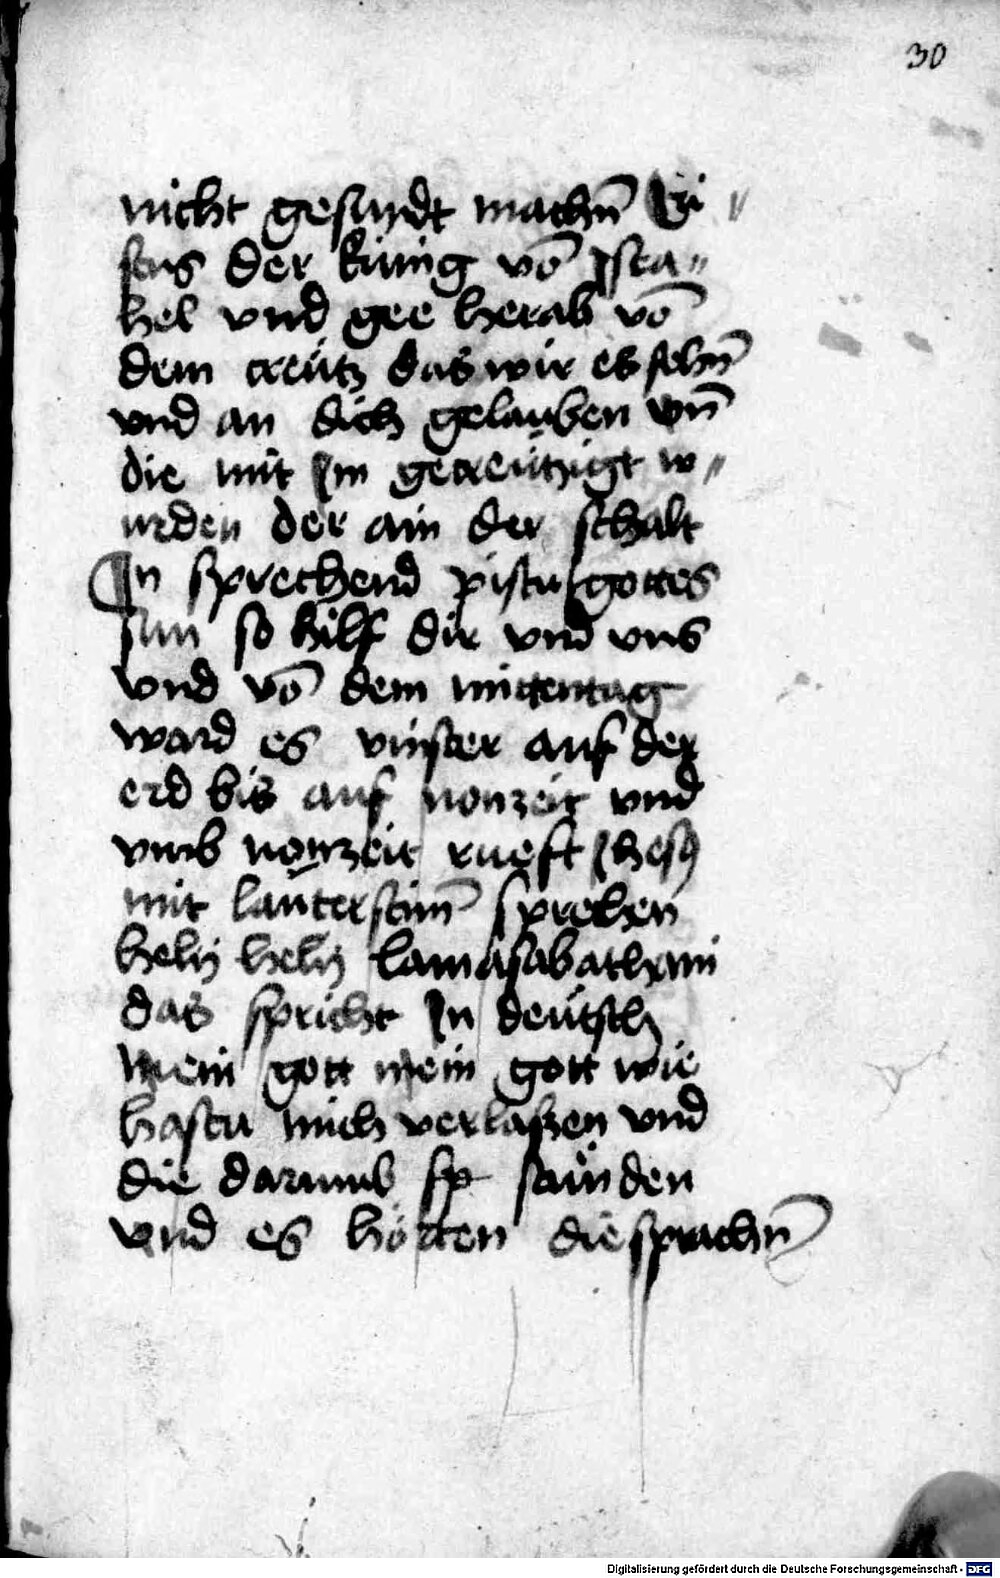 30
nicht gesundt machn̄
der kinig vō Isra〃
hel vnd gee herab vō
dem creütz das wir es sehn̄
vnd an dich gelauben vn̄
die mit Im gecreützigt w〃
urden der ain der schalt
In sprechend pistu gottes
sun so hilf dir vnd vns
vnd vō dem mittentag
ward es vinster auf der
erd bis auf nonzeit vnd
vmb nonzeit rueft Ihesus
mit lauter stim̄ sprechen
helÿ helÿ lamasabathani
das spricht In deütsch
mein gott mein gott wie
hastu mich verlaszen vnd
die darumb stuͤnden
vnd es horten die sprachn̄
Digitalisierung gefördert durch die Deutsche Forschungsgemeinschaft - DFG